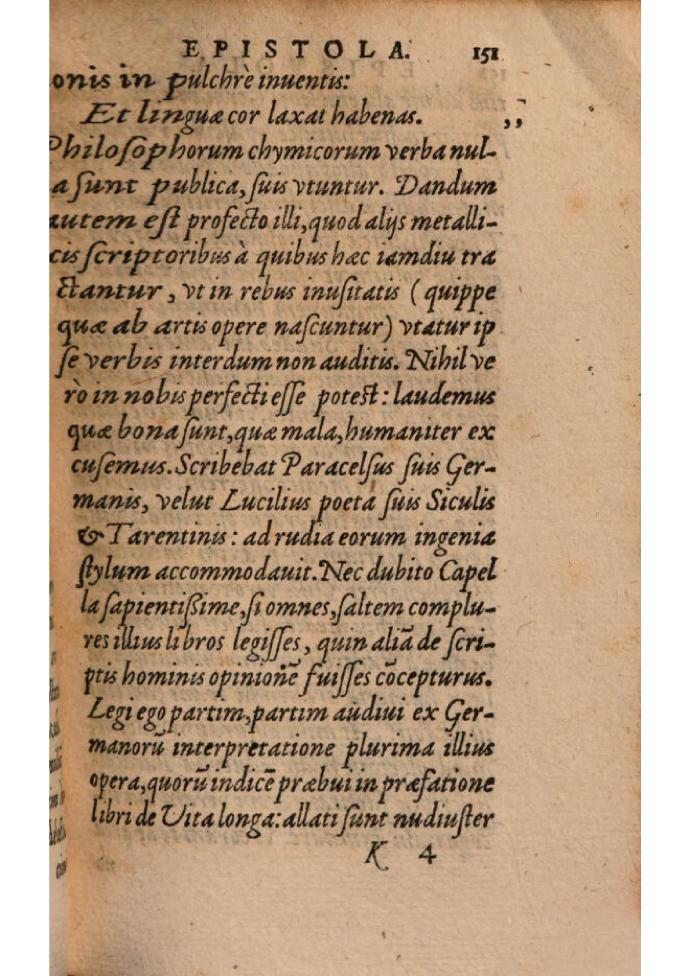 EPISTOLA. 151
onis in pulchrè inuentis:
Et linguæ cor laxat habenas. ,,
Philosophorum chymicorum verba nul-
a sunt publica, suis vtuntur. Dandum
autem est profecto illi, quod alijs metalli-
cis scriptoribus à quibus hæc iamdiu tra
ctantur, vt in rebus inusitatis (quippe
quæ ab artis opere nascuntur) vtatur ip
se verbis interdum non auditis. Nihil ve
rò in nobis perfecti esse potest: laudemus
quæ bona sunt, quæ mala, humaniter ex
cusemus. Scribebat Paracelsus suis Ger-
manis, velut Lucilius poeta suis Siculis
& Tarentinis: ad rudia eorum ingenia
stylum accommodauit. Nec dubito Capel
la sapientißime, si omnes, saltem complu-
res illius libros legisses, quin aliā de scri-
ptis hominis opinionē fuisses cōcepturus.
Legi ego partim, partim audiui ex Ger-
manorū interpretatione plurima illius
opera, quorū indicē præbui in præfatione
libri de Vita longa: allati sunt nudiuster
K 4